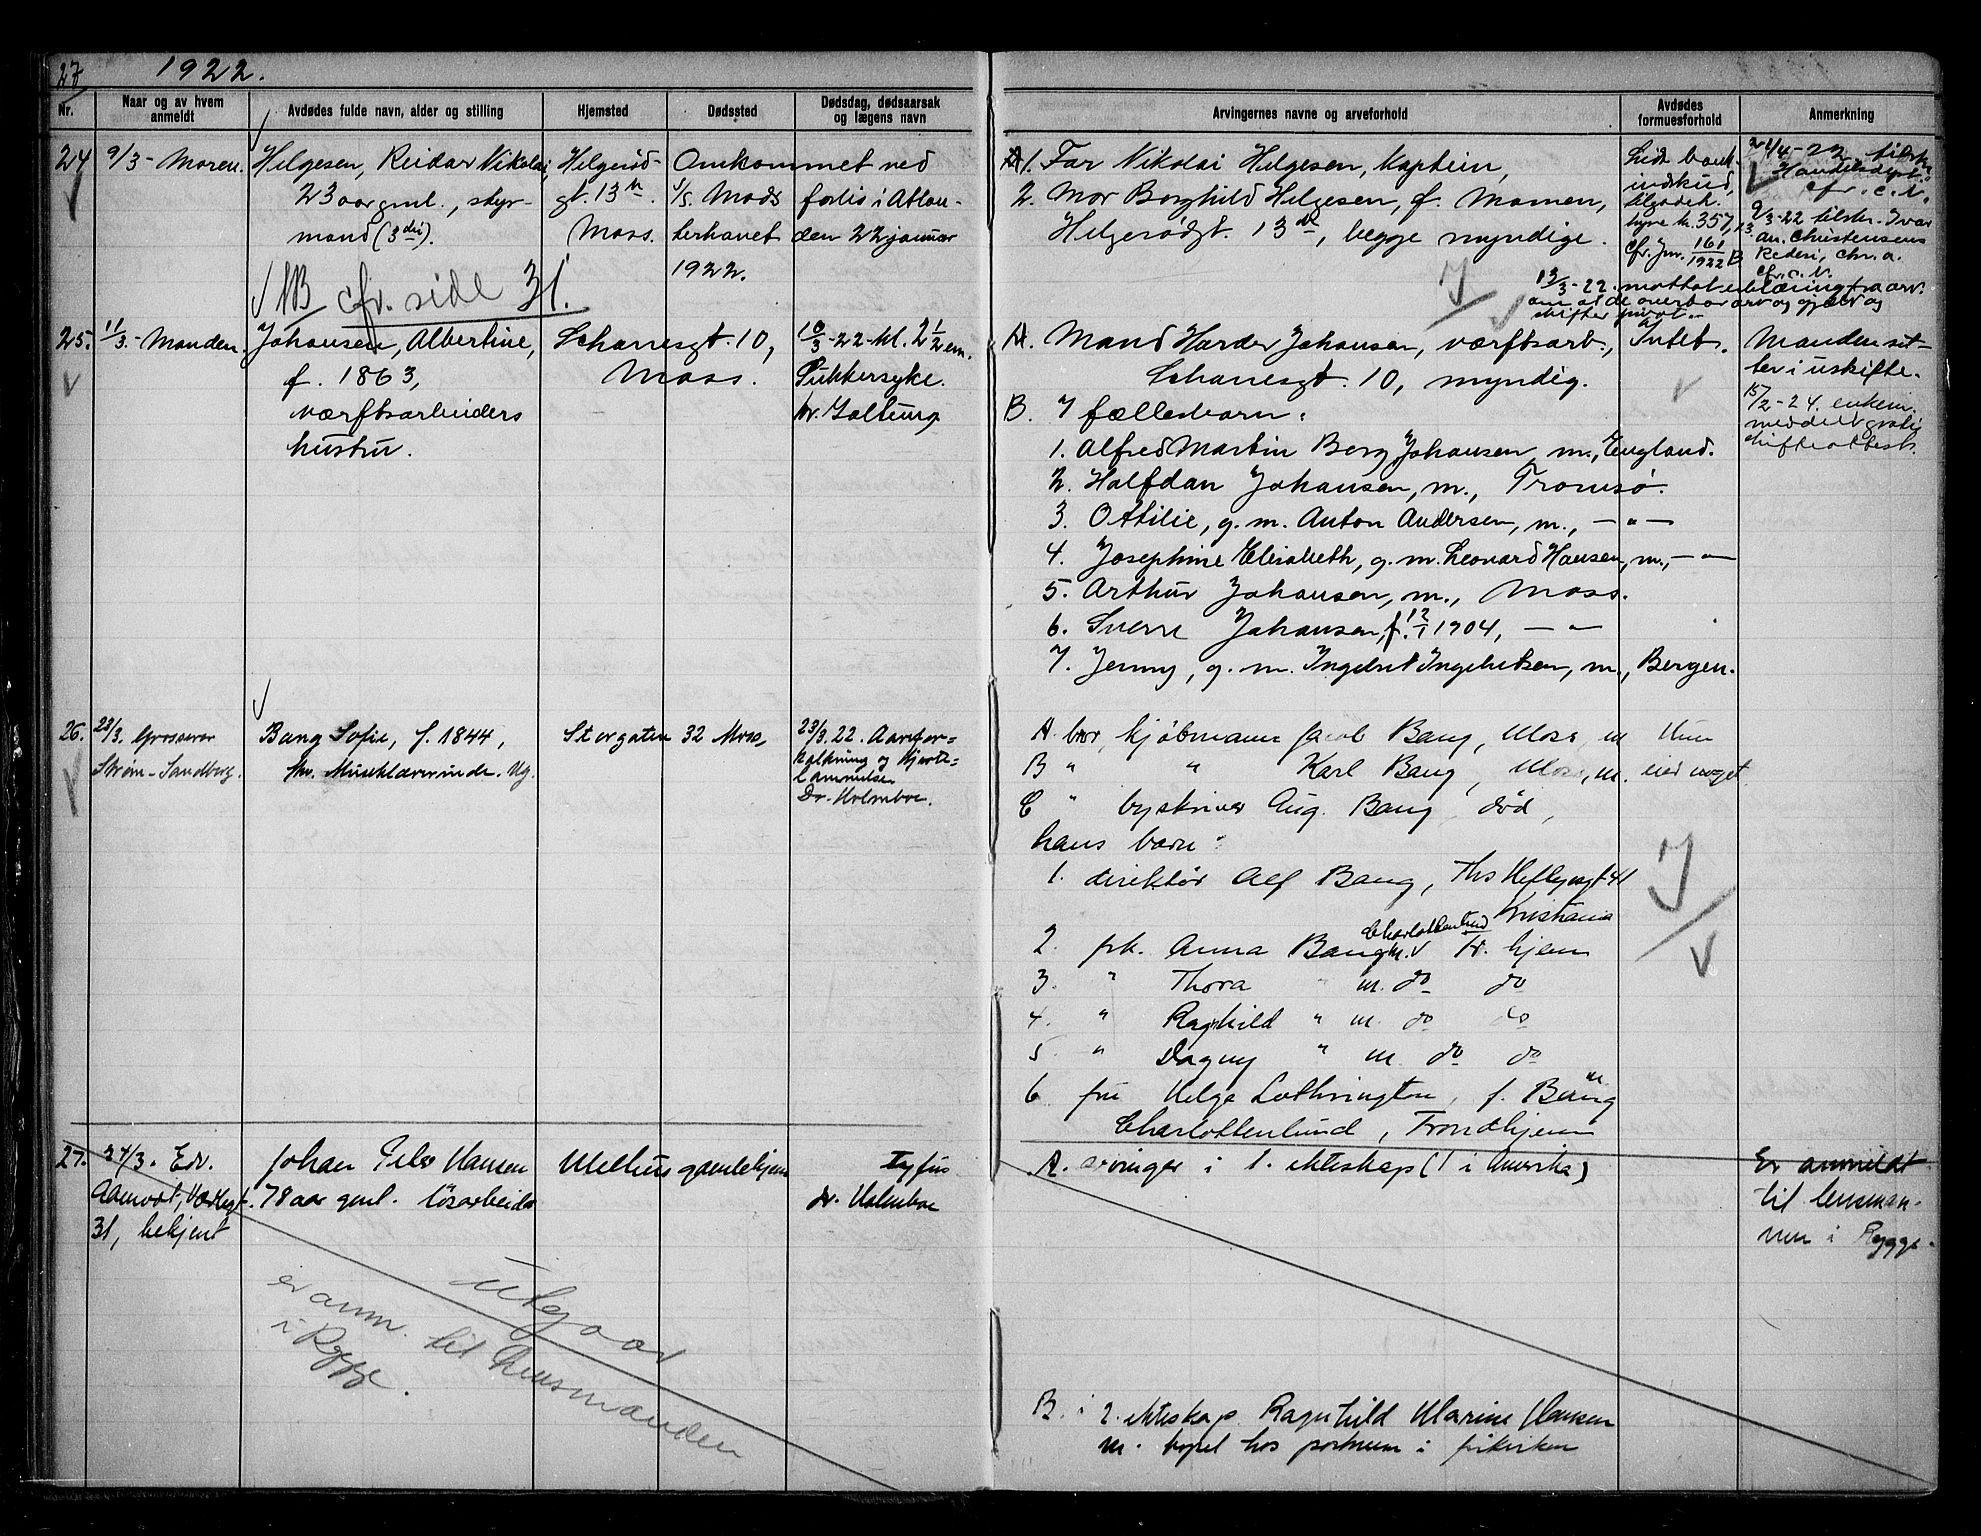 27 1922.
Nr. Naar og av hvem anmeldt Avdødes fulde navn, alder og stilling Hjemsted Dødssted Dødsdag, dødsaarsak og lægens navn Arvingernes navne og arveforhold Avdødes formuesforhold Anmerkning
24 9/3 - Moren.
Helgesen, Reidar Nikolai,
23 aar gml., styr-
mand (3die).
NB cfr. side 31.
Helgerød-
gt. 13
Moss.
Omkommet ved
S/S. Mods forlis i Atlan-
terhavet den 22 januar
1922.
A 1. Far Nikolai Helgesen, kaptein,
2. Mor Borghild Helgesen, f. Mamen,
Helgerødgt. 13, begge myndige.
Lidt bank-
indskud,
tilgodeh.
hyre kr. 357,
cfr. jnr. 161/1922 B
24/4-22 tilskr.
cfr. c. V.
9/3-22 tilskr. Ivar
An. Christensens
Rederi, Chr.a.
cfr. c. V.
13/3-22. mottat erklæring fra arv.
om at de overtar arv og gjæld og
skifter privat.
25. 11/3. - Manden.
Johansen, Albertine,
f. 1863,
værftsarbeiders
hustru.
Schanesgt. 10,
Moss.
10/3-22-kl. 2 1/2 em.
Sukkersyke.
Dr. Galtung
A. Mand Harder Johansen, værftsarb.,
Schanesgt. 10, myndig.
B. 7 fællesbarn:
1. Alfred Martin Berg Johansen, m., England.
2. Halfdan Johansen, m., Tromsø.
3. Ottilie, g. m. Anton Andersen, m., — " —
4. Josephine Elisabeth, g. m. Leonard Hansen, m., — " —
5. Arthur Johansen, m., Moss.
6. Sverre Johansen, f. 12/1 1904, — " —
7. Jenny, g. m. Ingebret Ingebretsen, m., Bergen.
Intet.
Manden sit-
ter i uskifte.
15/2-24. enkem.
meddelt gratis
skifteattest.
26. 23/3. Grosserer
Strøm-Sandberg.
Bang Sofie, f. 1844,
Musiklærerinde. Ug.
Storgaten 32 Moss,
23/3. 22. Aarefor-
kalkning og hjerte-
lammelse
Dr. Holmboe.
A bror, kjøbmann Jacob Bang, Moss, m
B " " Karl Bang, Moss, m.
C " byskriver Aug. Bang, død,
hans barn:
1. direktør Alf Bang, Ths Heftyesgt 41
Kristiania
2. frk. Anna Bang m. Charlottenlund v Tr. hjem
3. " Thora " m. do do
4. " Ragnhild " m. do do
5. " Dagny " m. do do
6 fru Helga Lothrington, f. Bang m
Charlottenlund, Trondhjem
Hun
eier noget
27. 27/3. Edv.
Aamodt, Værlegt.
31, bekjent
Johan Peter Hansen
78 aar gml. løsarbeider
Melhus gamlehjem
tyfus
dr. Holmboe
A. arvinger i 1. ekteskap (1 i Amerika)
B. i 2. ekteskap Ragnhild Marine Hansen
m. bopel hos portneren i frikirken
Er anmeldt
til lensman-
nen i Rygge.
Utgaar
er anm. til lensmanden
i Rygge.